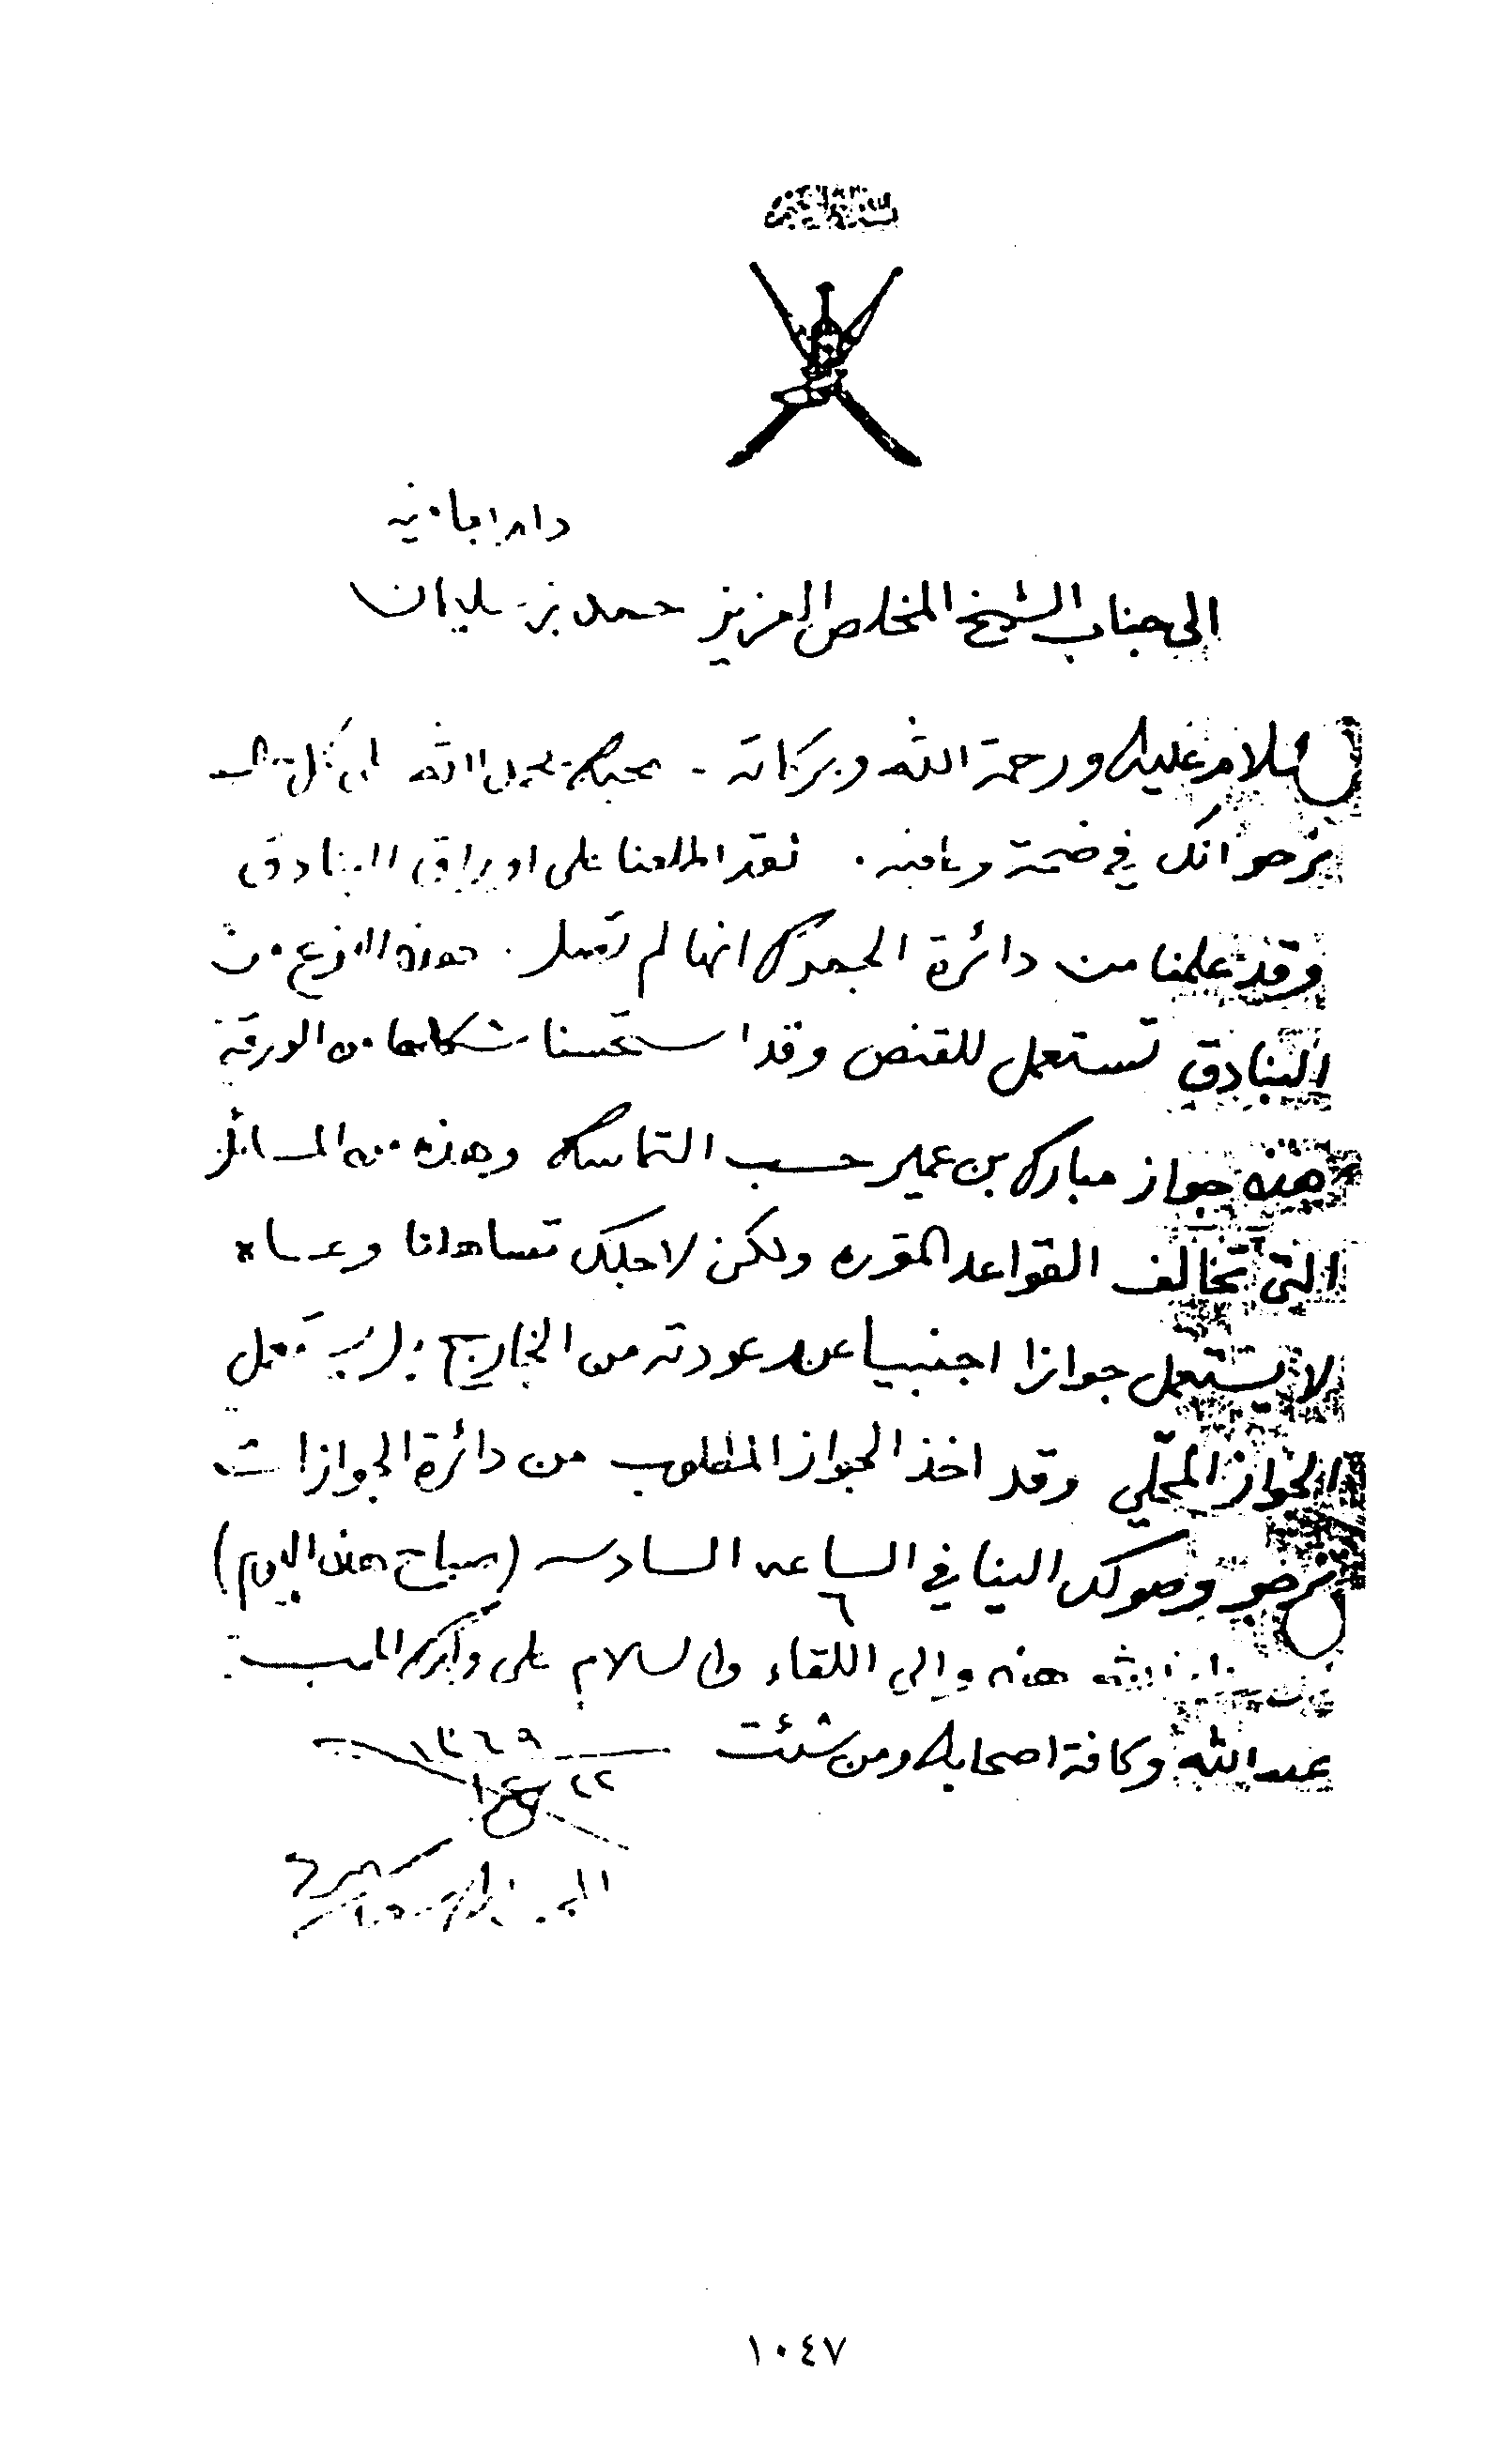 دام اجلاله
الى جناب الشيخ المخلص العزيز حمد بن سليمان
السلام عليك ورحمة الله وبركاته - محبك بحمد الله
نرجو انك في صحة وعافيه . لقد اطلعنا على اوراق البنادق
وقد علمنا من دائرة الجمرك انها لم تصل . هذه النوع من
البنادق تستعمل للقنص وقد استحسنا شكلها من الورقة
هذه جواز مبارك بن عمير حسب التماسك وهذه من المسائل
التي تخالف القواعد المقرره ولكن لاجلك تساهلنا وعساه
لا يستعمل جوازا اجنبيا عند عودته من الخارج بل يستعمل
الجواز المحلّي وقد اخذ الجواز المطلوب من دائرة الجوازات
نرجو وصولك الينا في الساعه السادسه (صباح هذا اليوم)
٦
الله هذه والى اللقاء والسلام على المحب
عبدالله وكافة اصحابك ومن شئت
١٣٦٩
١٠٤٧